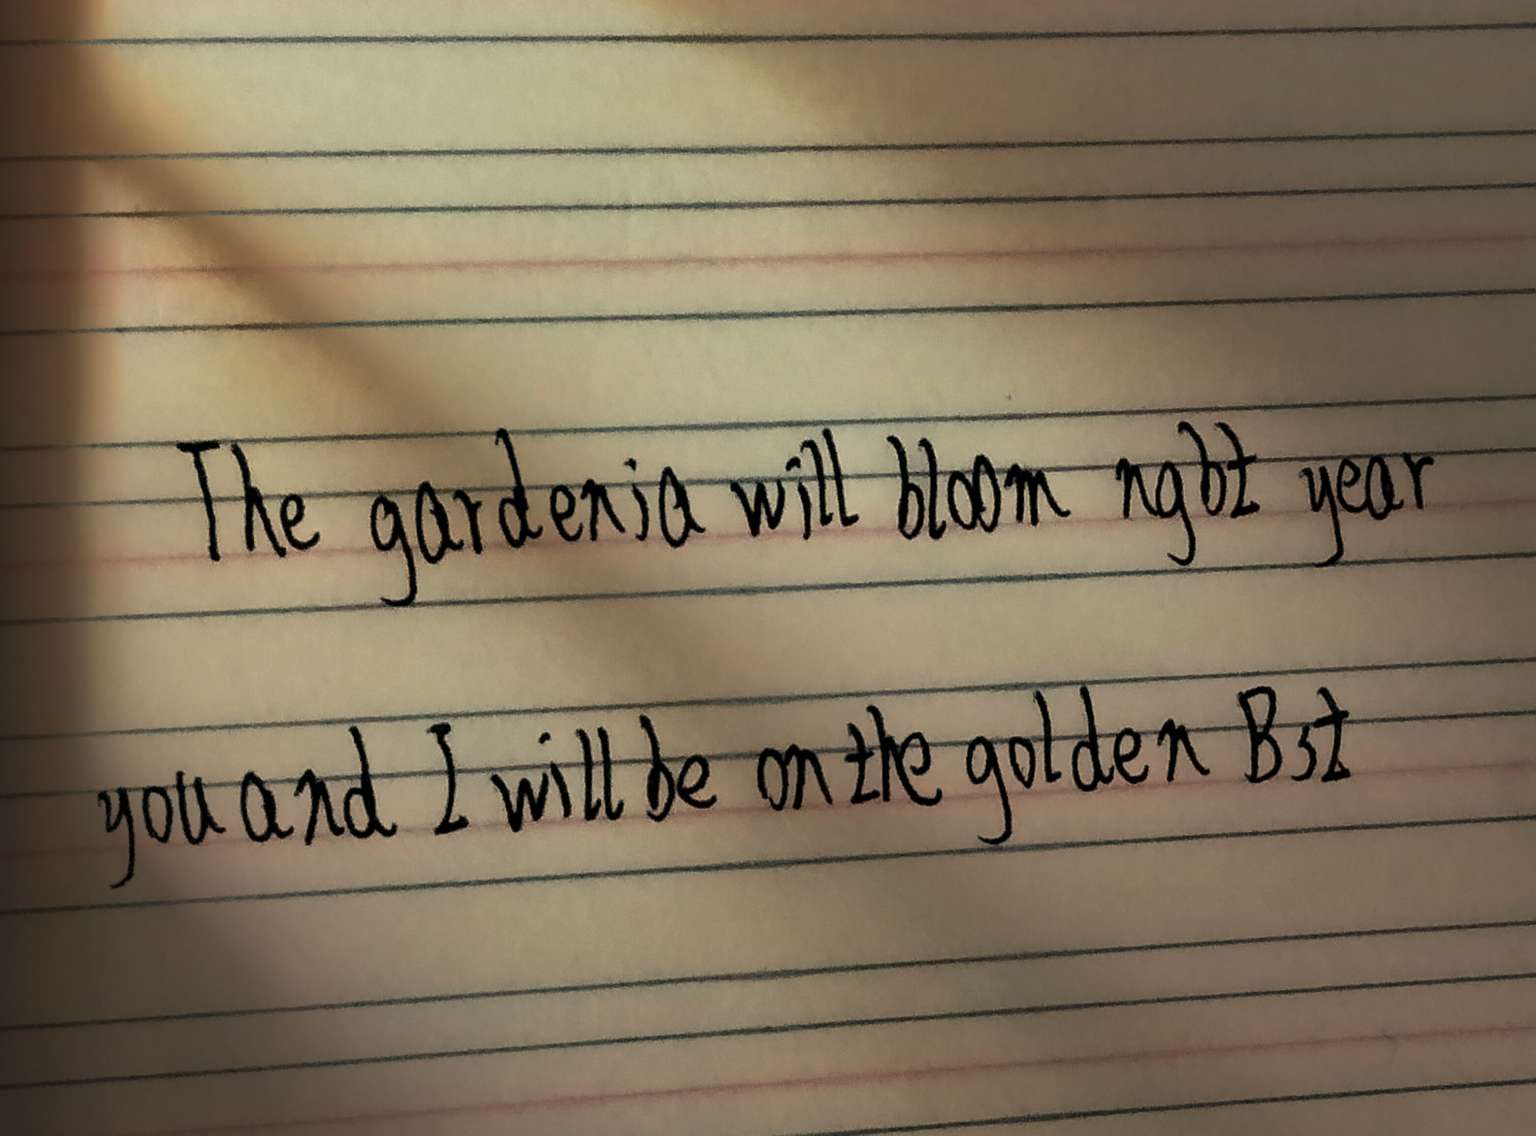 The gardenia will bloom ngbt year
you and I will be on the golden Bst